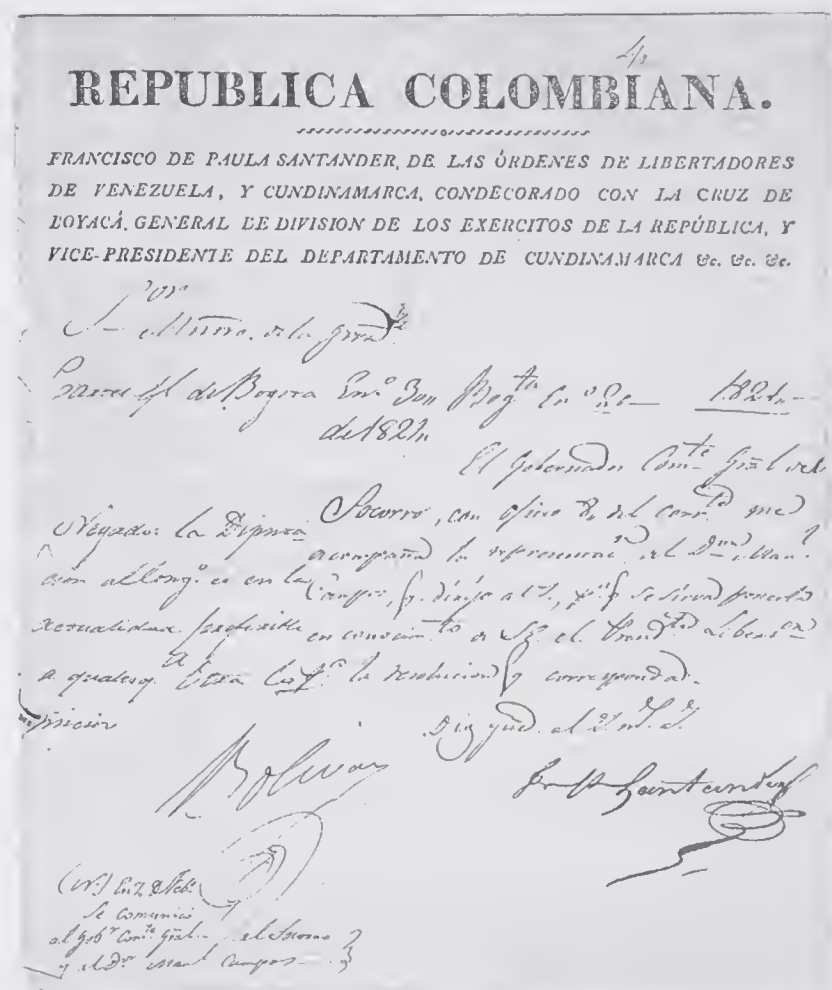 REPUBLICA COLOMBIANA.
FRANCISCO DE PAULA SANTANDER, DE LAS ÓRDENES DE LIBERTADORES
DE VENEZUELA, Y CUNDINAMARCA, CONDECORADO CON LA CRUZ DE
BOYACÁ, GENERAL DE DIVISION DE LOS EXERCITOS DE LA REPÚBLICA, Y
VICE-PRESIDENTE DEL DEPARTAMENTO DE CUNDINAMARCA &c. &c. &c.
Sor Mtro. de la
de Bogota En.º 30 Bog.ta En.º 1821
de 1821
El Gobernador Com.te Gral del
Socorro, con oficio 8 del corr.te me
acompaña la del D.
Campos, q. dirijo a
en conocim.to de S.E. el Presid.te Libert.or
la resolucion q corresponda.
Negado: la Diputa
cion al Cong.º es en la
actualidad preferible
a qualesq.a otra
Dios gue. a
Bolivar
F. P. Santander
En 7 Feb.
Se comunicó
al Gob.r Com.te Gral del Socorro
y al D.r Man.l Campos